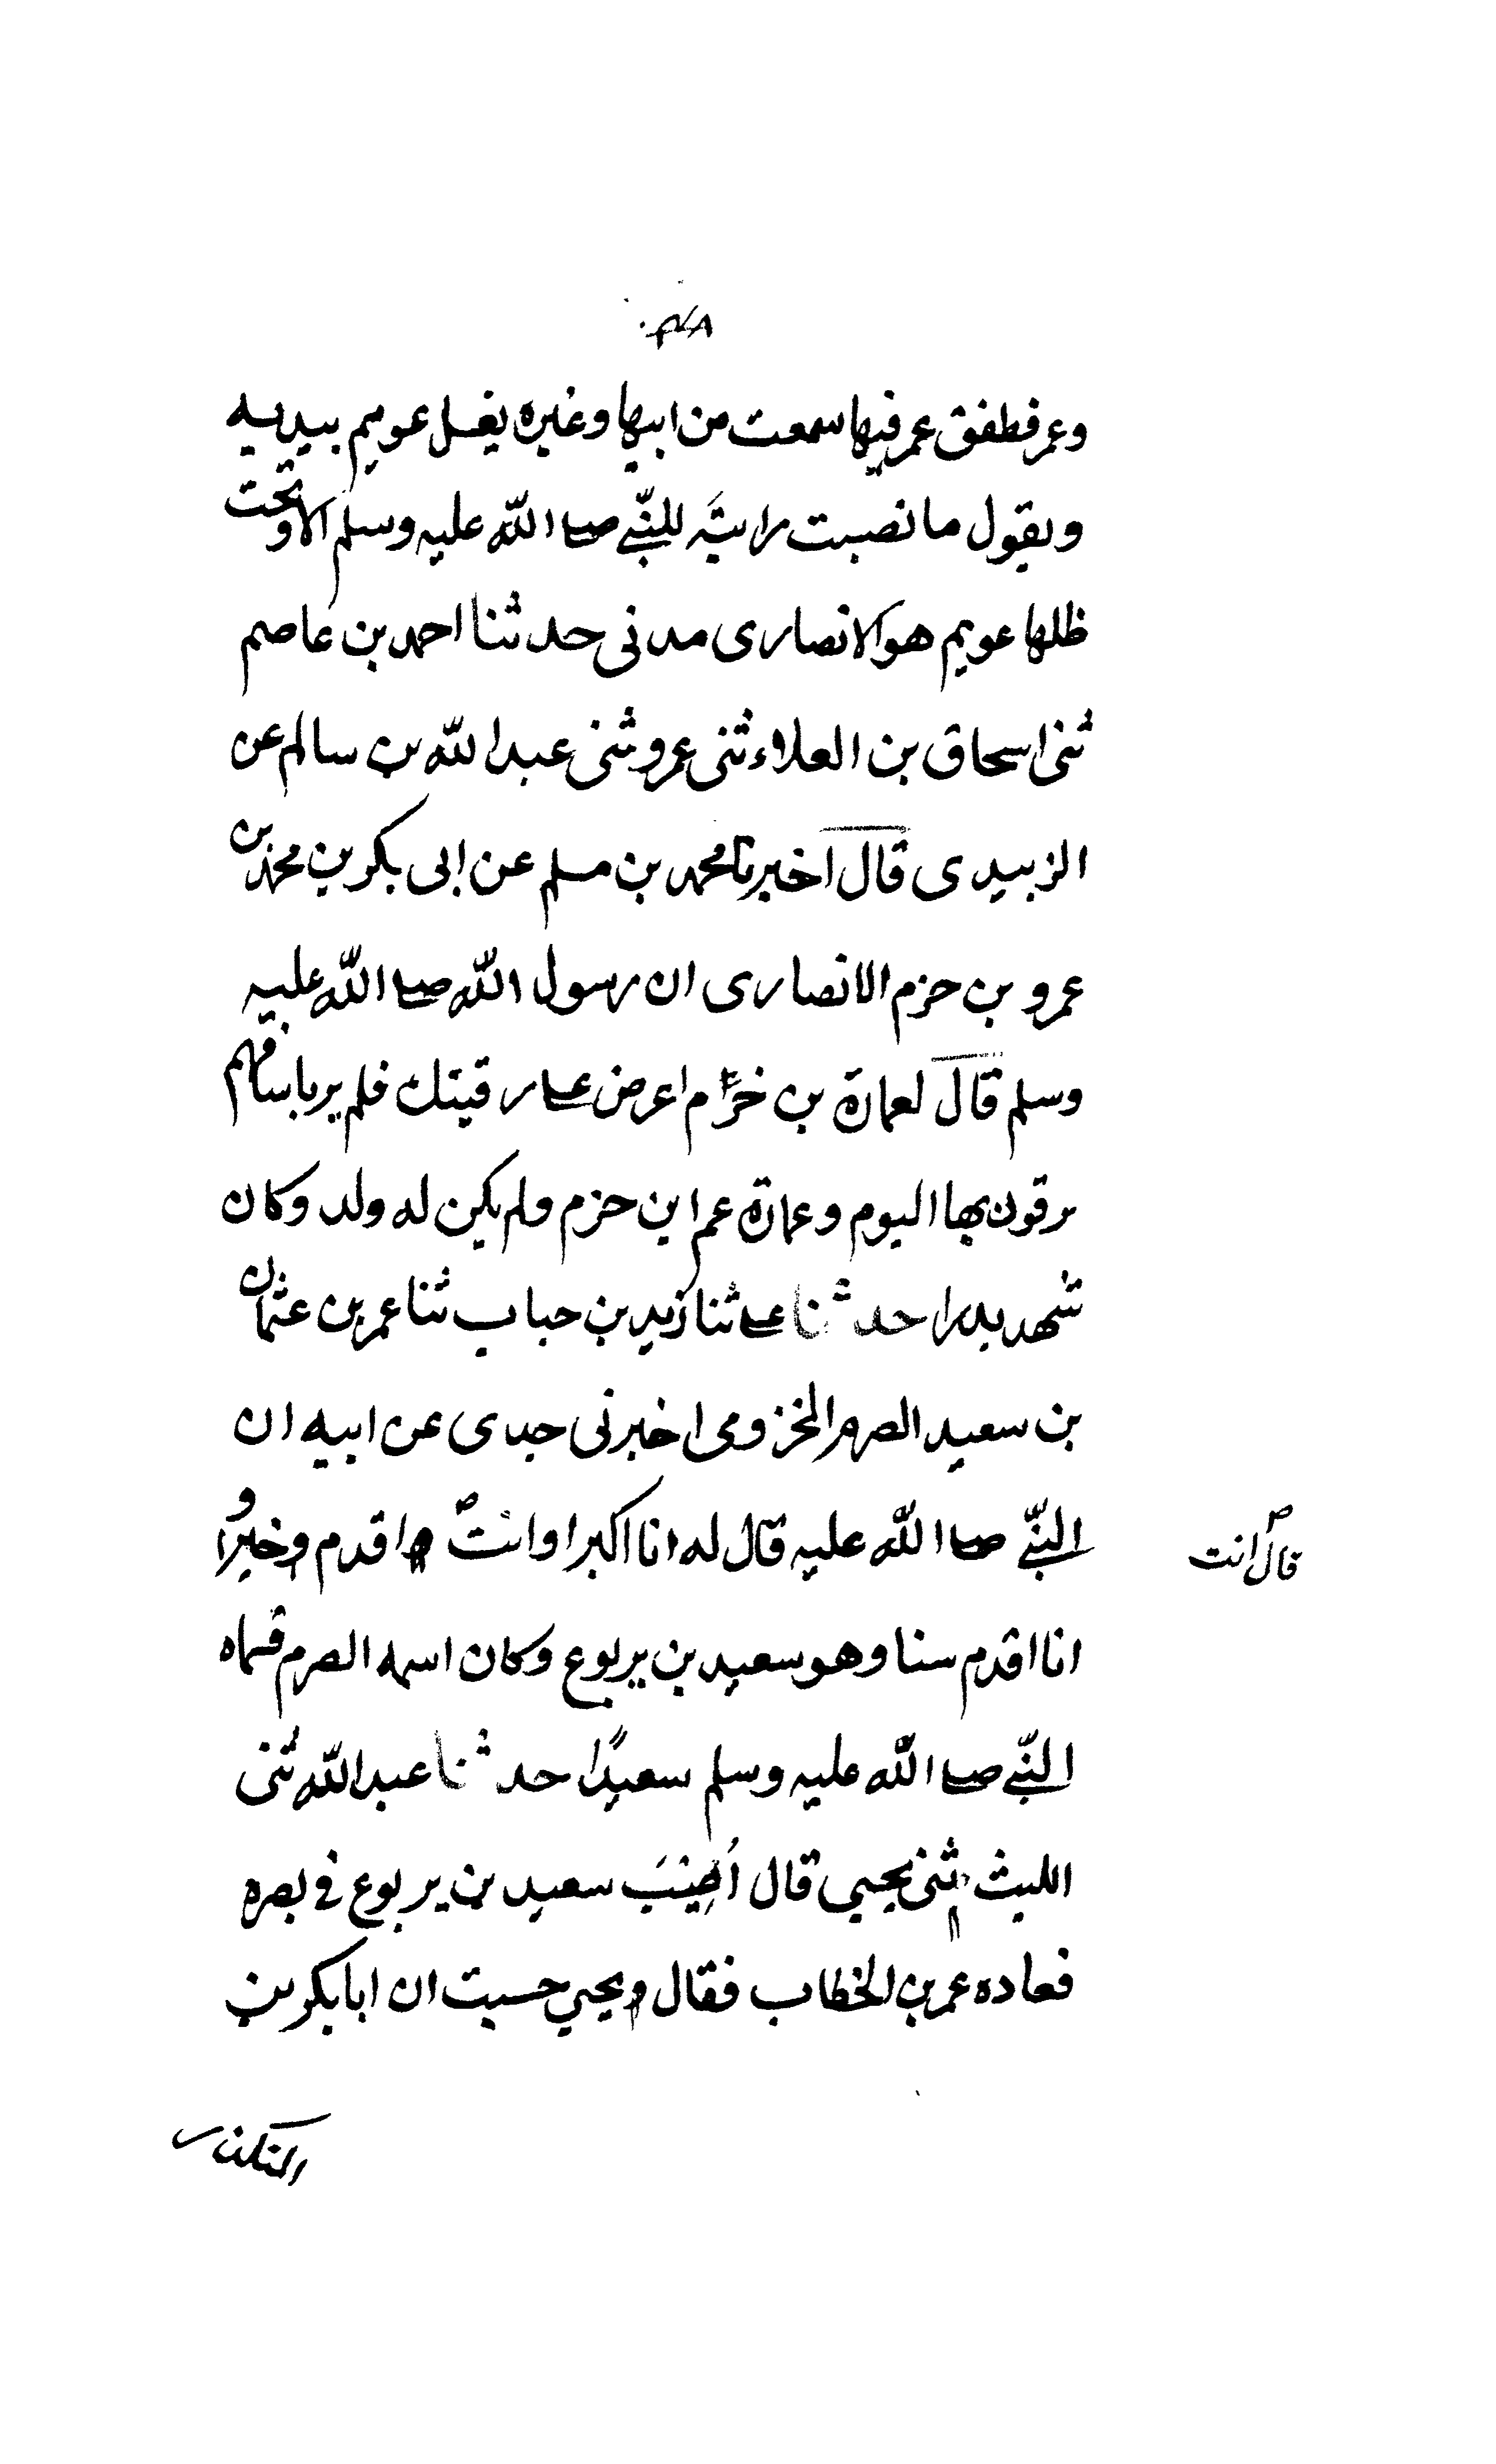 وعمر فطفق عمر فيها سمعت من ابيها وغيره يغسل عويم بيديه
ويقول ما نصبت راية للنبي صلى الله عليه وسلم الا وتحت
ظلها عويم هو الانصارى مدنى حدثنا احمد بن عاصم
ثنى اسحاق بن العلاء ثنى عمرو ثنى عبد الله بن سالم عن
الزبيدى قال اخبرنا محمد بن مسلم عن ابى بكر بن محمد بن
عمرو بن حزم الانصارى ان رسول الله صلى الله عليه
وسلم قال لعمارة بن حزم اعرض على رقيتك فلم ير باسا فهم
يرقون بها اليوم وعمارة عم ابن حزم ولم يكن له ولد وكان
شهد بدرا حدثنا على ثنا زيد بن حباب ثنا عمر بن عثمان
بن سعيد الصرم المخزومى اخبرنى جدى عن ابيه ان
النبي صلى الله عليه قال له انا اكبر او انت اقدم وخيرا و
قال انت
انا اقدم سنا وهو سعيد بن يربوع وكان اسمه الصرم فسماه
النبي صلى الله عليه وسلم سعيدًا حدثنا عبد الله ثنى
الليث ثنى يحيى قال أُصِيْبَ سعيد بن يربوع في بصره
فعاده عمر بن الخطاب فقال ويحيي حسبت ان ابا بكر بن